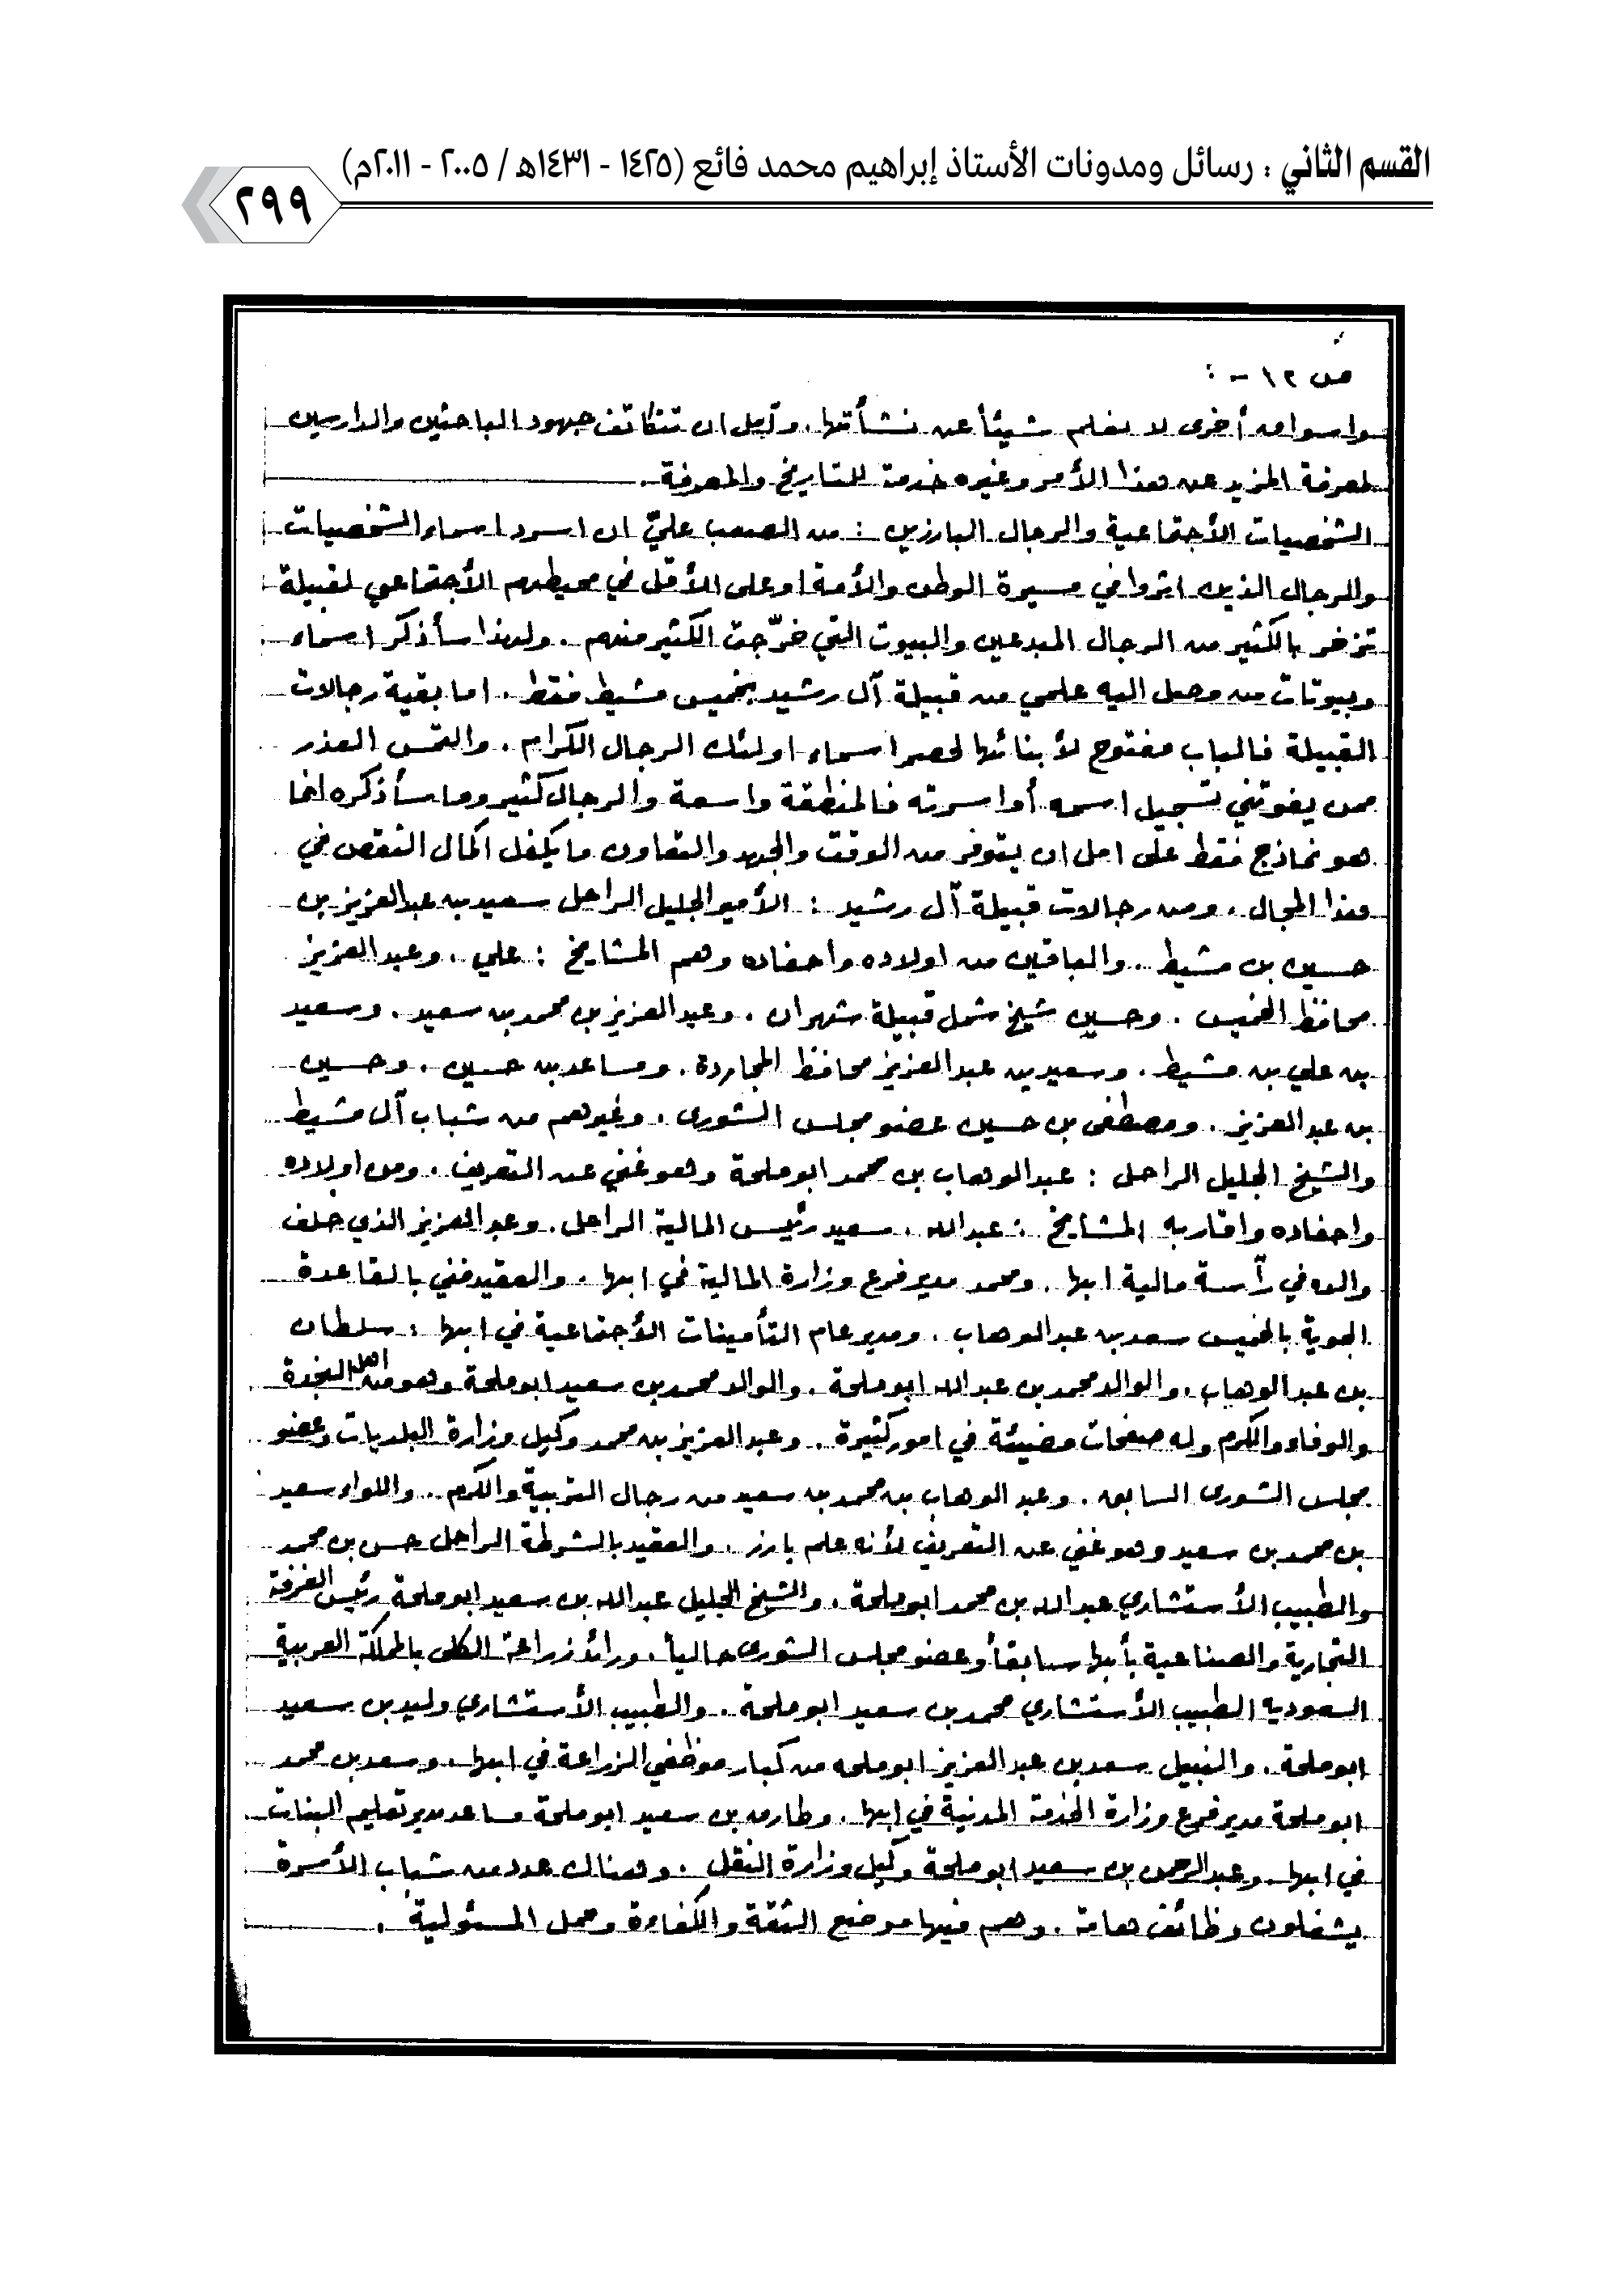 القسم الثاني : رسائل ومدونات الأستاذ إبراهيم محمد فائع (١٤٢٥ - ١٤٣١هـ / ٢٠٠٥ - ٢٠١١م)
٢٩٩
ص ١٢ - :
واسواق أخرى لا نعلم شيئاً عن نشأتها . ونأمل ان تتكاتف جهود الباحثين والدارسين
لمعرفة المزيد عن هذا الأمر وغيره خدمة للتاريخ والمعرفة .
الشخصيات الأجتماعية والرجال البارزين : من الصعب عليّ ان اسرد اسماء الشخصيات
والرجال الذين اثروا في مسيرة الوطن والأمة او على الأقل في محيطهم الأجتماعي لقبيلة
تزخر بالكثير من الرجال المبدعين والبيوت التي خرّجت الكثير منهم . ولهذا سأذكر اسماء
وبيوتات من وصل اليه علمي من قبيلة آل رشيد بخميس مشيط فقط . اما بقية رجالات
القبيلة فالباب مفتوح لأبنائها لحصر اسماء اولئك الرجال الكرام . والتمس العذر
ممن يفوتني تسجيل اسمه أو اسرته فالمنطقة واسعة والرجال كثير وما سأذكره انما
هو نماذج فقط على امل ان يتوفر من الوقت والجهد والتعاون ما يكفل اكمال النقص في
هذا المجال . ومن رجالات قبيلة آل رشيد : الأمير الجليل الراحل سعيد بن عبدالعزيز بن
حسين بن مشيط . والباقين من اولاده واحفاده وهم المشايخ : علي . وعبدالعزيز
محافظ الخميس . وحسين شيخ شمل قبيلة شهران . وعبدالعزيز بن محمد بن سعيد . وسعيد
بن علي بن مشيط . وسعيد بن عبدالعزيز محافظ المجاردة . ومساعد بن حسين . وحسين
بن عبدالعزيز . ومصطفى بن حسين عضو مجلس الشورى . وغيرهم من شباب آل مشيط
والشيخ الجليل الراحل : عبدالوهاب بن محمد ابوملحة وهو غني عن التعريف . ومن اولاده
واحفاده واقاربه المشايخ : عبدالله . سعيد رئيس المالية الراحل . وعبدالعزيز الذي خلف
والده في رآسة مالية ابها . ومحمد مدير فرع وزارة المالية في ابها . والعقيد فني بالقاعدة
الجوية بالخميس سعد بن عبدالوهاب . ومدير عام التأمينات الأجتماعية في ابها : سلطان
بن عبدالوهاب . والوالد محمد بن عبدالله ابوملحة . والوالد محمد بن سعيد ابوملحة وهو من اهل النجدة
والوفاء والكرم وله صفحات مضيئة في امور كثيرة . وعبدالعزيز بن محمد وكيل وزارة البلديات وعضو
مجلس الشورى السابق . وعبد الوهاب بن محمد بن سعيد من رجال التربية والكرم . واللواء سعيد
بن محمد بن سعيد وهو غني عن التعريف لأنه علم بارز . والعقيد بالشرطة الراحل حسن بن محمد
والطبيب الأستشاري عبدالله بن محمد ابوملحة . والشيخ الجليل عبدالله بن سعيد ابوملحة رئيس الغرفة
التجارية والصناعية بأبها سابقاً وعضو مجلس الشورى حالياً . ورائد زراعة الكلى بالمملكة العربية
السعودية الطبيب الأستشاري محمد بن سعيد ابوملحة . والطبيب الأستشاري وليد بن سعيد
ابوملحة . والنبيل سعد بن عبدالعزيز ابوملحه من كبار موظفي الزراعة في ابها . وسعد بن محمد
ابوملحة مدير فرع وزارة الخدمة المدنية في ابها . وطارق بن سعيد ابوملحة مساعد مدير تعليم البنات
في ابها . وعبدالرحمن بن سعيد ابوملحة وكيل وزارة النقل . وهنالك عدد من شباب الأسرة
يشغلون وظائف هامة . وهم فيها موضع الثقة والكفاءة وحمل المسئولية .